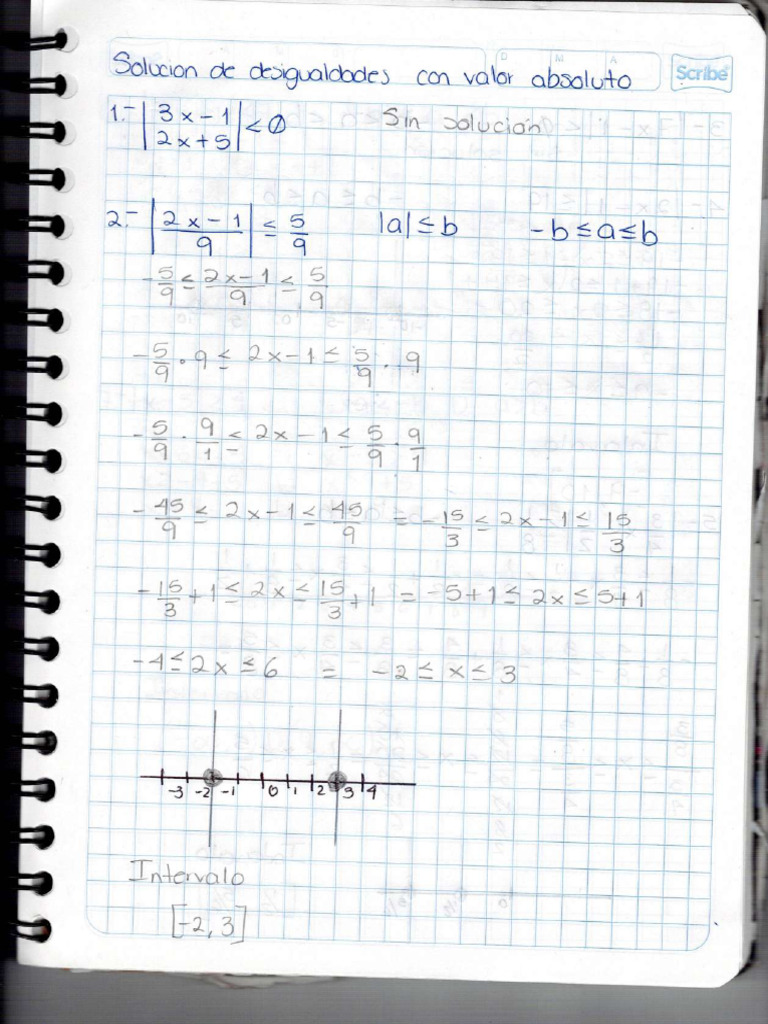 Solucion de desigualdades con valor absoluto
D M A
Scribe
1.- |3x-1 / 2x+5| < 0 Sin solución
2.- |2x-1 / 9| ≤ 5/9 |a| ≤ b -b ≤ a ≤ b
-5/9 ≤ 2x-1/9 ≤ 5/9
-5/9 · 9 ≤ 2x-1 ≤ 5/9 · 9
-5/9 · 9/1 ≤ 2x-1 ≤ 5/9 · 9/1
-45/9 ≤ 2x-1 ≤ 45/9 = -15/3 ≤ 2x-1 ≤ 15/3
-15/3 +1 ≤ 2x ≤ 15/3 +1 = -5+1 ≤ 2x ≤ 5+1
-4 ≤ 2x ≤ 6 = -2 ≤ x ≤ 3
-3 -2 -1 0 1 2 3 4
Intervalo
[-2, 3]